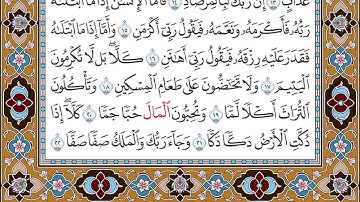 عَذَابٍ ١٣ إِنَّ رَبَّكَ لَبِالْمِرْصَادِ ١٤ فَأَمَّا الْإِنسَٰنُ إِذَا مَا ابْتَلَىٰهُ
رَبُّهُ فَأَكْرَمَهُ وَنَعَّمَهُ فَيَقُولُ رَبِّي أَكْرَمَنِ ١٥ وَأَمَّا إِذَا مَا ابْتَلَىٰهُ
فَقَدَرَ عَلَيْهِ رِزْقَهُ فَيَقُولُ رَبِّي أَهَٰنَنِ ١٦ كَلَّا ۖ بَل لَّا تُكْرِمُونَ
الْيَتِيمَ ١٧ وَلَا تَحَٰٓضُّونَ عَلَىٰ طَعَامِ الْمِسْكِينِ ١٨ وَتَأْكُلُونَ
التُّرَاثَ أَكْلًا لَّمًّا ١٩ وَتُحِبُّونَ الْمَالَ حُبًّا جَمًّا ٢٠ كَلَّا ۖ إِذَا
دُكَّتِ الْأَرْضُ دَكًّا دَكًّا ٢١ وَجَاءَ رَبُّكَ وَالْمَلَكُ صَفًّا صَفًّا ٢٢